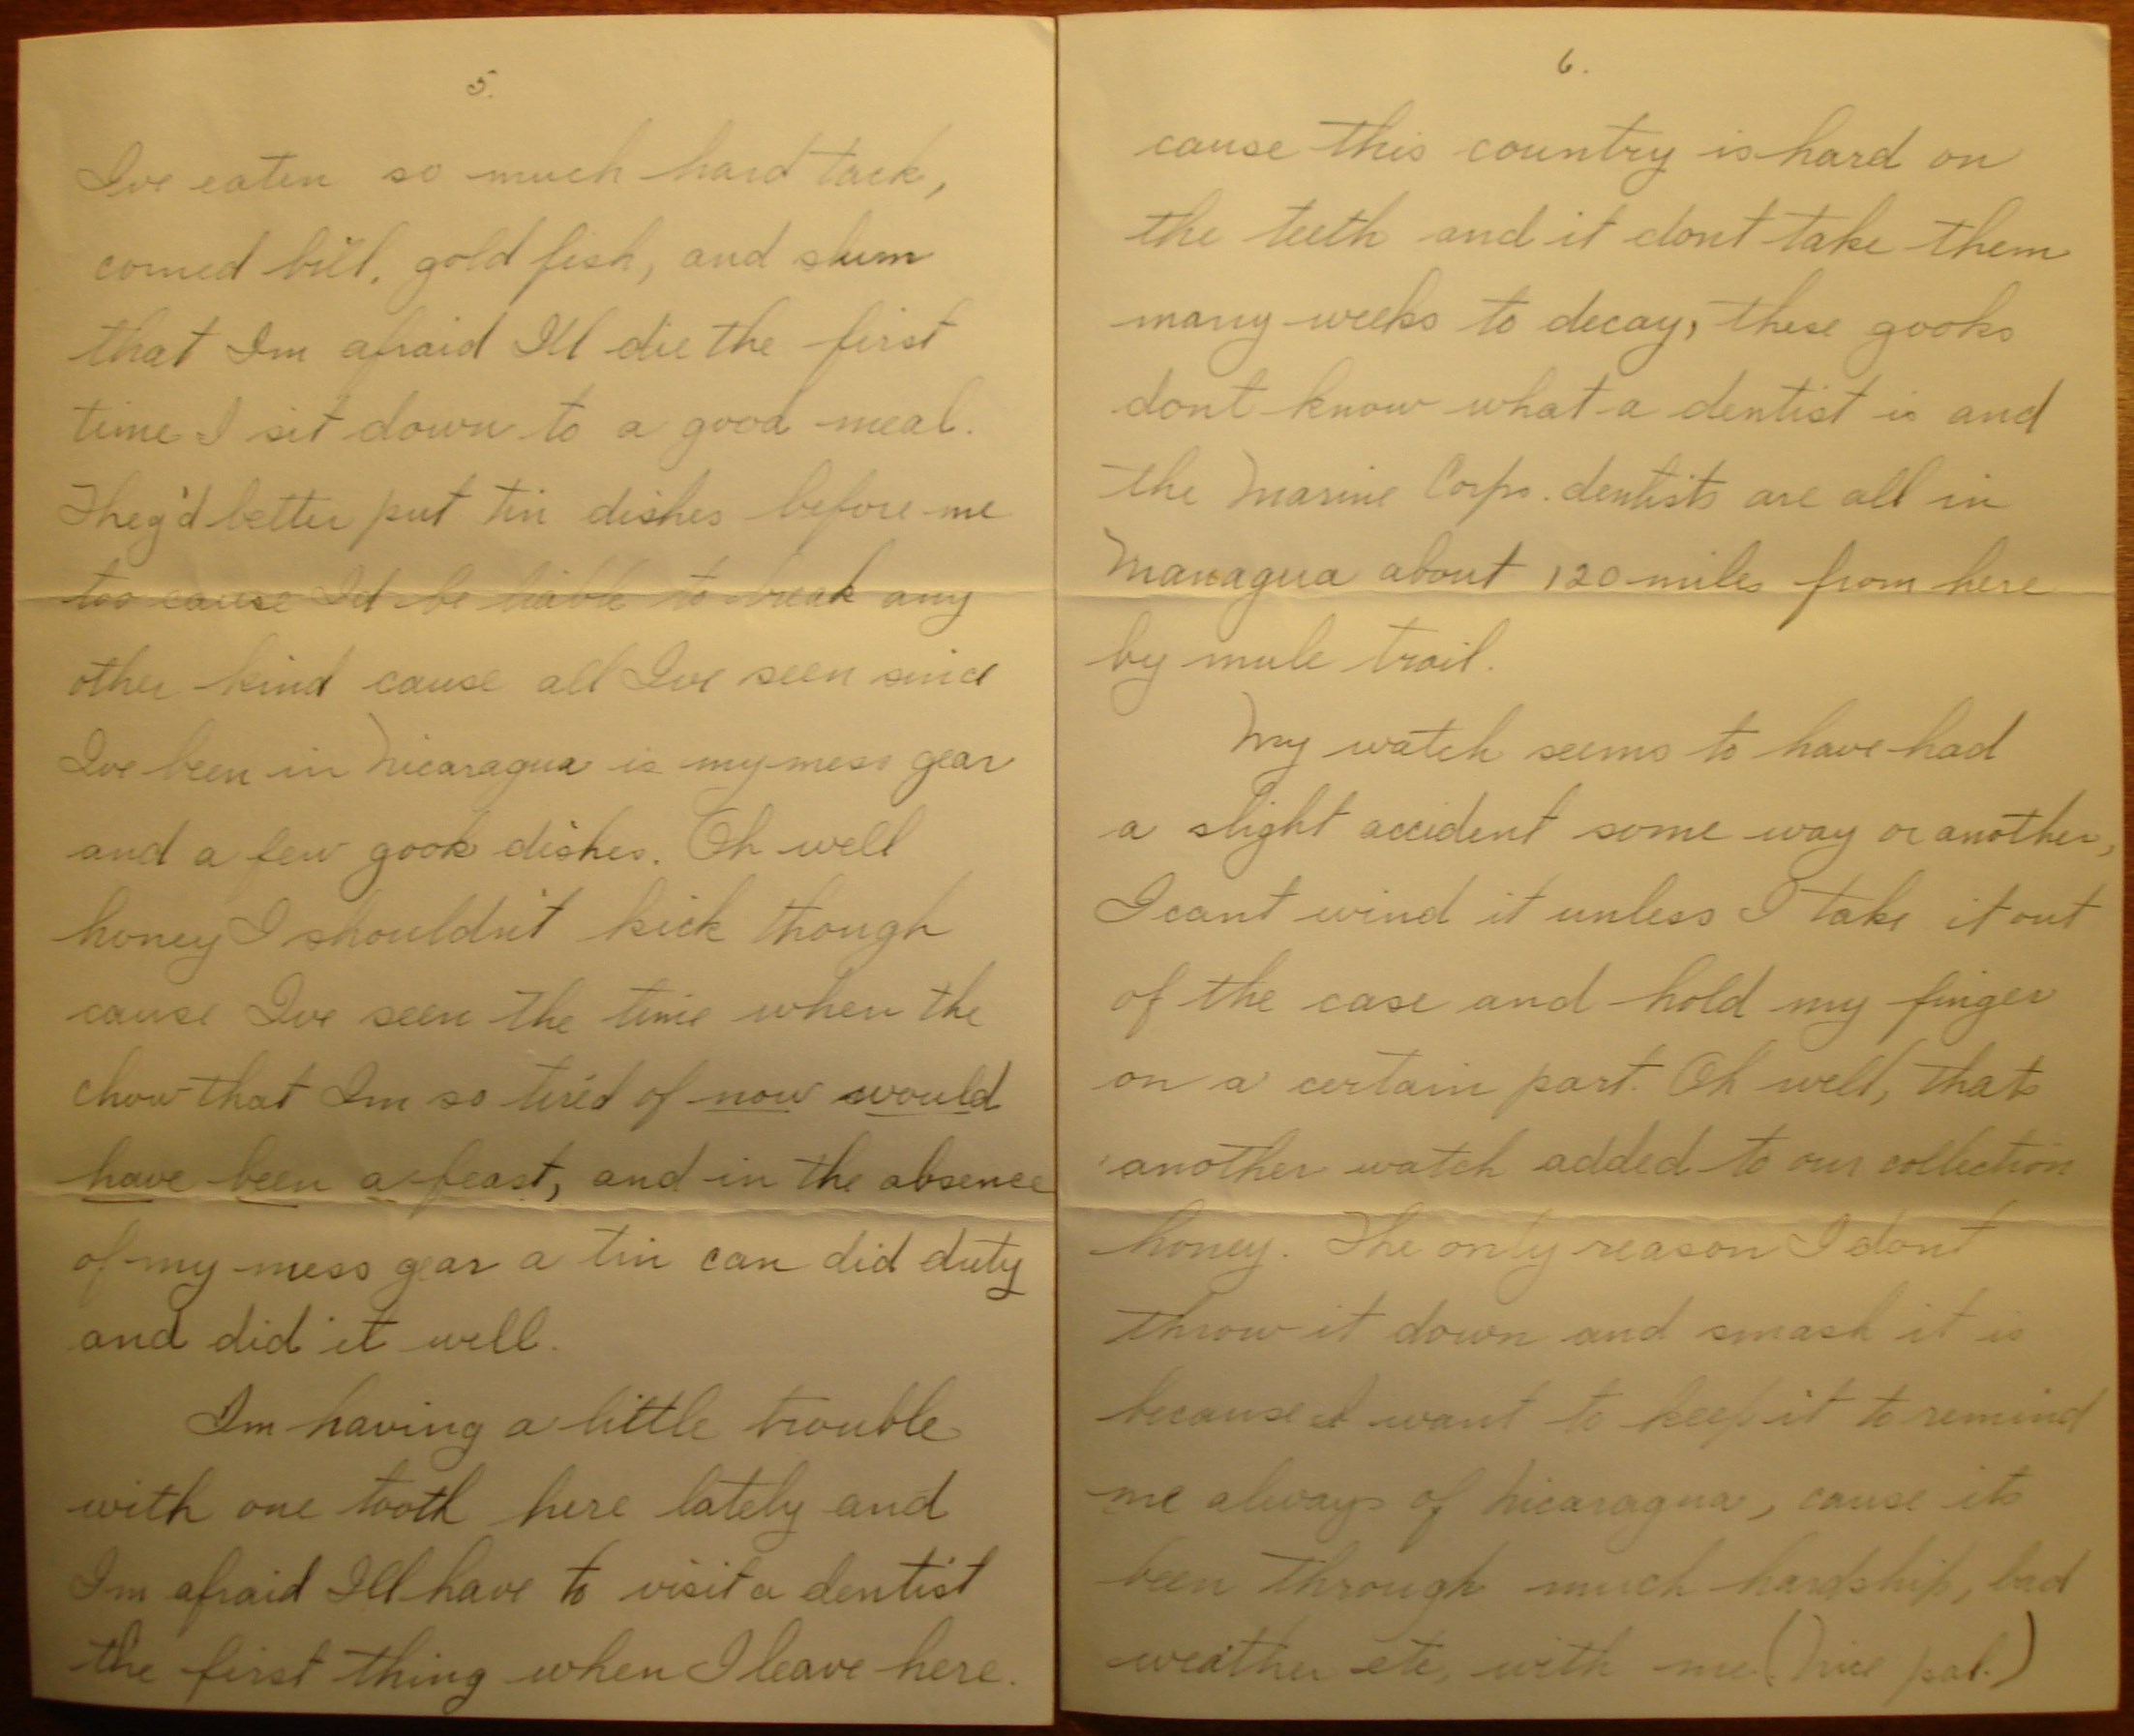 5.
Ive eaten so much hard tack,
corned bill, gold fish, and slum
that Im afraid I'll die the first
time I sit down to a good meal.
They'd better put tin dishes before me
too cause I'd be liable to break any
other kind cause all Ive seen since
Ive been in Nicaragua is my mess gear
and a few gook dishes. Oh well
honey I shouldn't kick though
cause Ive seen the time when the
chow that Im so tired of now would
have been a feast, and in the absence
of my mess gear a tin can did duty
and did it well.
Im having a little trouble
with one tooth here lately and
Im afraid Ill have to visit a dentist
the first thing when I leave here.
6.
cause this country is hard on
the teeth and it dont take them
many weeks to decay, these gooks
dont know what a dentist is and
the Marine Corps. dentists are all in
Managua about 120 miles from here
by mule trail.
My watch seems to have had
a slight accident some way or another,
I cant wind it unless I take it out
of the case and hold my finger
on a certain part. Oh well, thats
another watch added to our collection
honey. The only reason I dont
throw it down and smash it is
because I want to keep it to remind
me always of Nicaragua, cause its
been through much hardship, bad
weather etc, with me (Nice pal.)